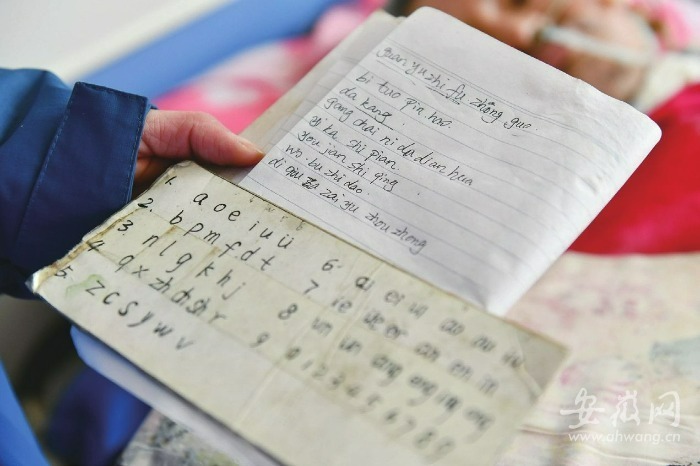 guan yu zhi fu zhong guo.
bi tuo pin hao.
da kang
gang chai ni da dian hua
ka shi pian
you jian shi qing
wo bu zhi dao.
di zai yu zhou zhong
1. a o e i u ü
2. b p m f d t
3. n l g k h j
4. q x zh ch sh r
5. z c s y w v
6. ai ei ui ao ou iu
7 ie üe er an en in
8 un ün ang eng ing ong
9 0 1 2 3 4 5 6 7 8 9
安徽网
www.ahwang.cn